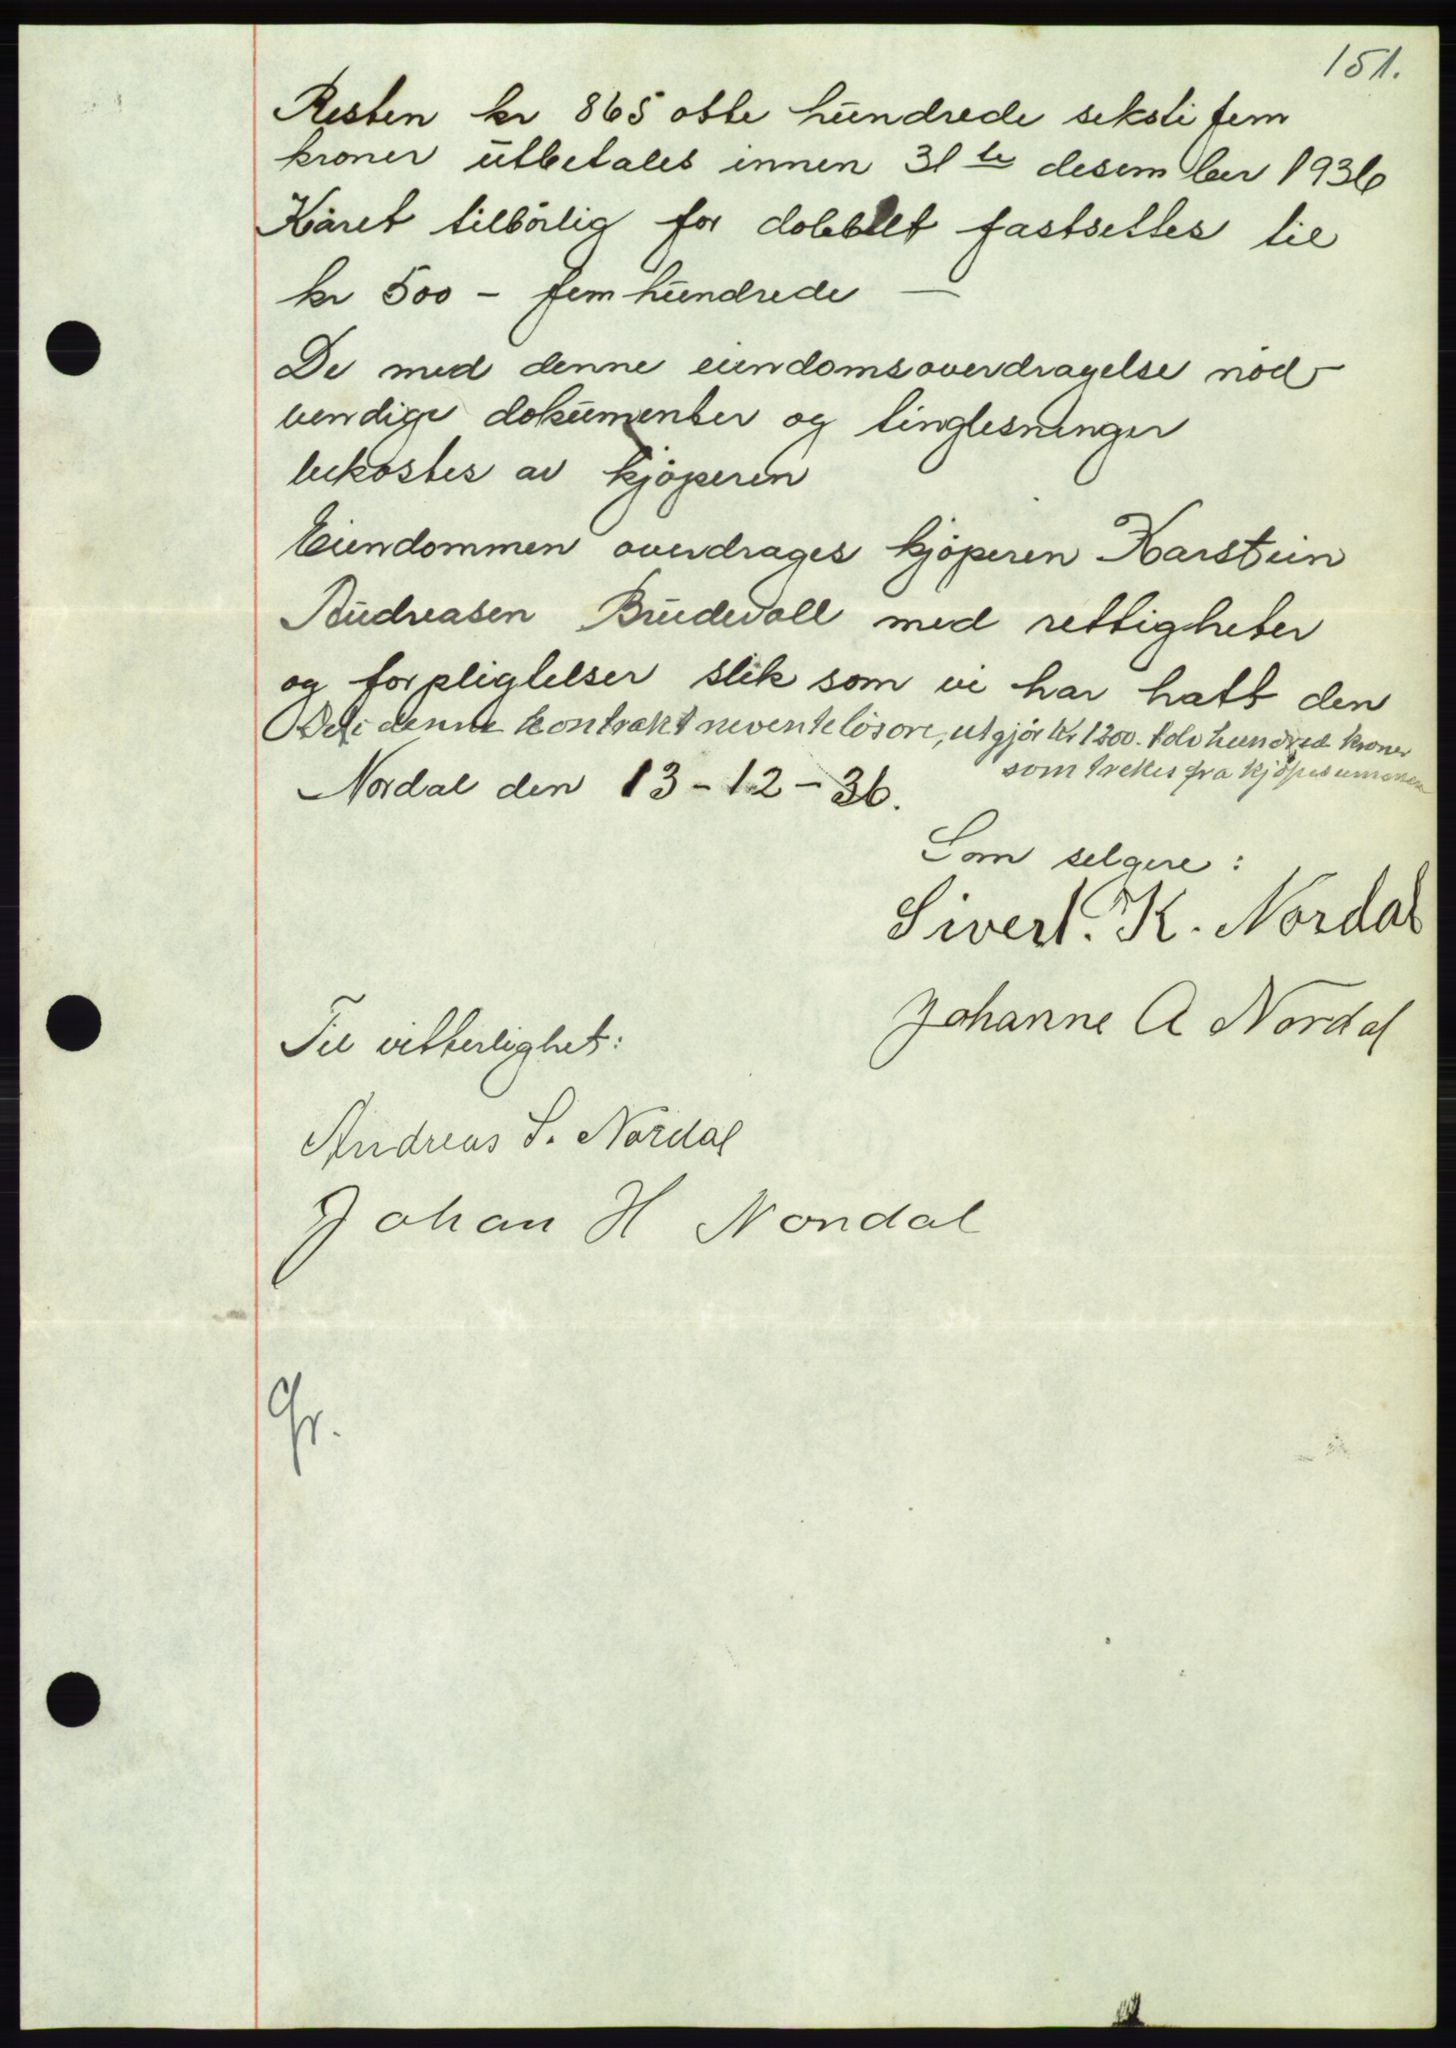 151.
Resten kr 865 otte hundrede seksti fem
kroner utbetales innen 31te desember 1936
Kåret tilbørlig for dobbelt fastsettes til
kr 500 - fem hundrede —
De med denne eiendomsoverdragelse nød-
vendige dokumenter og tinglesninger
bekostes av kjøperen
Eiendommen overdrages kjøperen Karstein
Andreasen Brudevoll med rettigheter
og forpligtelser slik som vi har hatt den
Det i denne kontrakt nevente løsøre, utgjør Kr 1200. tolv hundred kroner
som trekkes fra kjøpesummen
Nordal den 13-12-36.
Som selgere:
Sivert. K. Nordal
Johanne A Nordal
Til vitterlighet:
Andreas S. Nordal
Johan H Nordal
Gr.